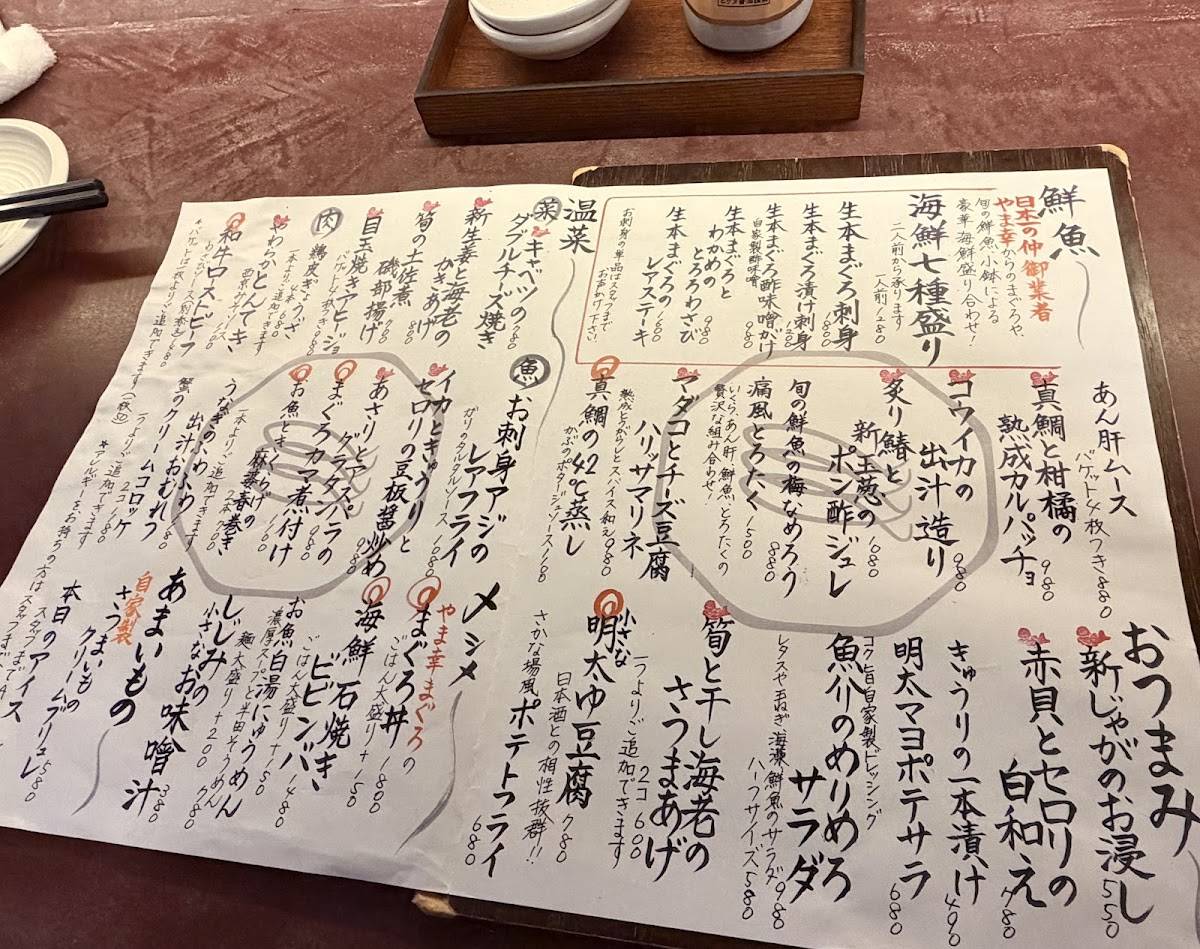 鮮魚
日本一の仲御業者
やま幸からのまぐろや
旬の鮮魚小鉢による
豪華海鮮盛り合わせ!
海鮮七種盛り
二人前から承ります
一人前1280
生本まぐろ刺身
生本まぐろ漬け刺身
生本まぐろ酢味噌がけ
自家製酢味噌
生本まぐろと
わかめの
とろろわさび
980
生本まぐろの
レアステーキ
お刺身の単品はスタッフまで
お声かけ下さい。
あん肝ムース
バゲット4枚つき880
真鯛と柑橘の
熟成カルパッチョ
980
コウイカの
出汁造り
980
炙り鯖と
新玉葱の
ポン酢ジュレ
1080
旬の鮮魚の梅なめろう
880
痛風とろたく
1500
いくら、あん肝、鮮魚、とろたくの
贅沢な組み合わせ!
マダコとチーズ豆腐
ハリッサマリネ
熟成とうがらしとスパイス和え980
真鯛の42℃蒸し
かぶのポタージュソース1100
おつまみ
新じゃがのお浸し
550
赤貝とセロリの
白和え
780
きゅうりの一本漬け
490
明太マヨポテサラ
680
魚がりのめりめろ
サラダ
コク旨自家製ドレッシング
レタスや玉ねぎ、海藻、鮮魚のサラダ980
ハーフサイズ580
筍と干し海老の
さつまあげ
2コ600
一つよりご追加できます
小さな
明太ゆ豆腐
780
日本酒との相性抜群!!
さかな場風ポテトフライ
680
温菜
菜
キャベツの
ダブルチーズ焼き
780
新生姜と海老の
かきあげ
筍の土佐煮
磯部揚げ
800
目玉焼きアヒージョ
バゲット4枚つき980
肉
鶏皮ぎょうざ
やわらかとんてき
和牛ローストビーフ
魚
お刺身アジの
レアフライ
がりのタルタルソース
イカときゅうりと
セロリの豆板醤炒め
1080
あさりとアスパラの
グラタン
980
まぐろカマ煮付け
お魚ときくらげの
麻薬春巻き
一本よりご追加できます
うなぎのふわふわ
出汁おむれつ
蟹のクリームコロッケ
一つよりご追加できます
〆シメ
やま幸まぐろの
まぐろ丼
1800
ごはん大盛り+150
海鮮石焼き
ビビンバ
1480
ごはん大盛り+150
お魚白湯にゅうめん
濃厚スープと半田そうめん
麺大盛り+200
しじみの
小さなお味噌汁
380
あまいもの
自家製
さつまいもの
クリームブリュレ
580
本日のアイス
*アレルギーをお持ちの方はスタッフまで